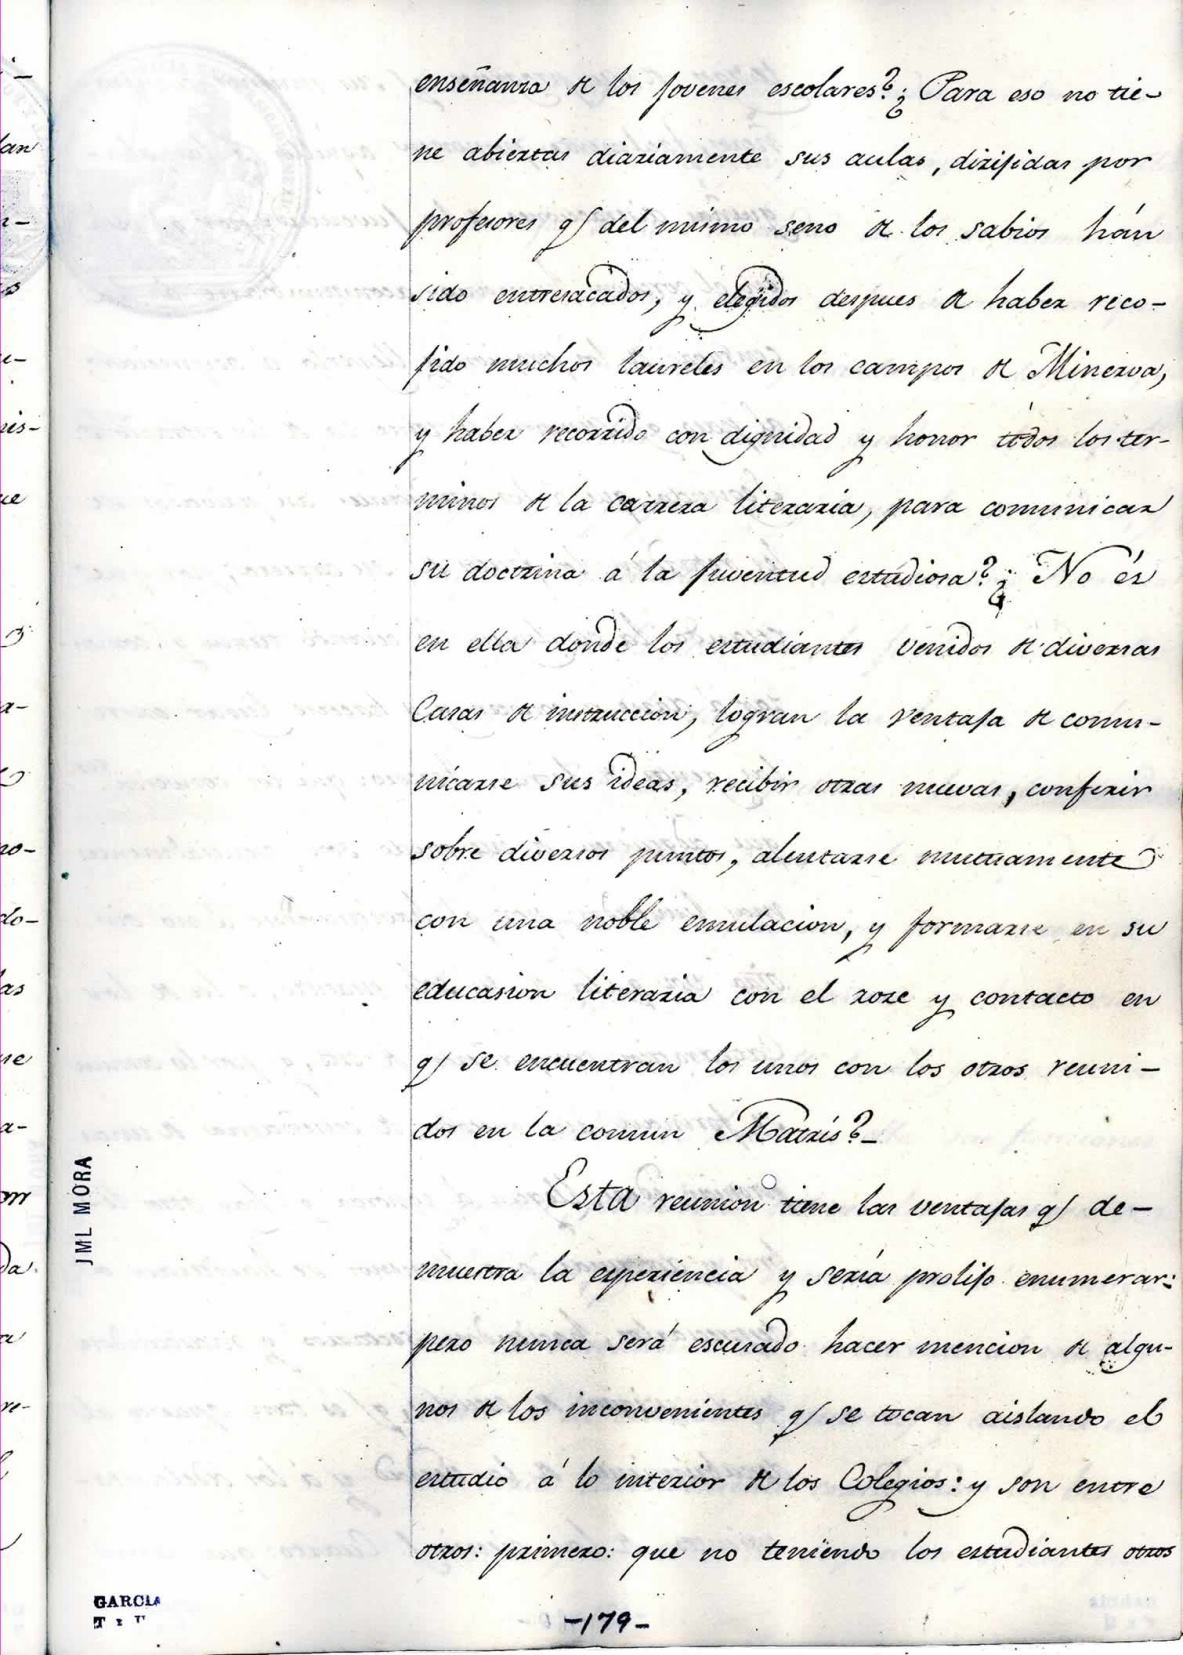 enseñanza de los jovenes escolares? ¿Para eso no tie-
ne abiertas diariamente sus aulas, dirijidas por
profesores q/ del mismo seno de los sabios hán
sido entresacados, y elegidos despues de haber reco-
jido muchos laureles en los campos de Minerva,
y haber recorrido con dignidad y honor todos los ter-
minos de la carrera literaria, para comunicar
su doctrina á la juventud estudiosa? ¿No és
en ella donde los estudiantes venidos de diversas
Casas de instruccion, logran la ventaja de comu-
nicarse sus ideas, recibir otras nuevas, conferir
sobre diversos puntos, alentarse mutuamente
con una noble emulacion, y formarse en su
educasion literaria con el roze y contacto en
q/ se encuentran los unos con los otros reuni-
dos en la comun Matrís?_
Esta reunion tiene las ventajas q/ de-
muestra la esperiencia y sería prolijo enumerar:
pero nunca será escusado hacer mencion de algu-
nos de los inconvenientes q/ se tocan aislando el
estudio á lo interior de los Colegios: y son entre
otros: primero: que no teniendo los estudiantes otros
JML MORA
GARCIA
-179-